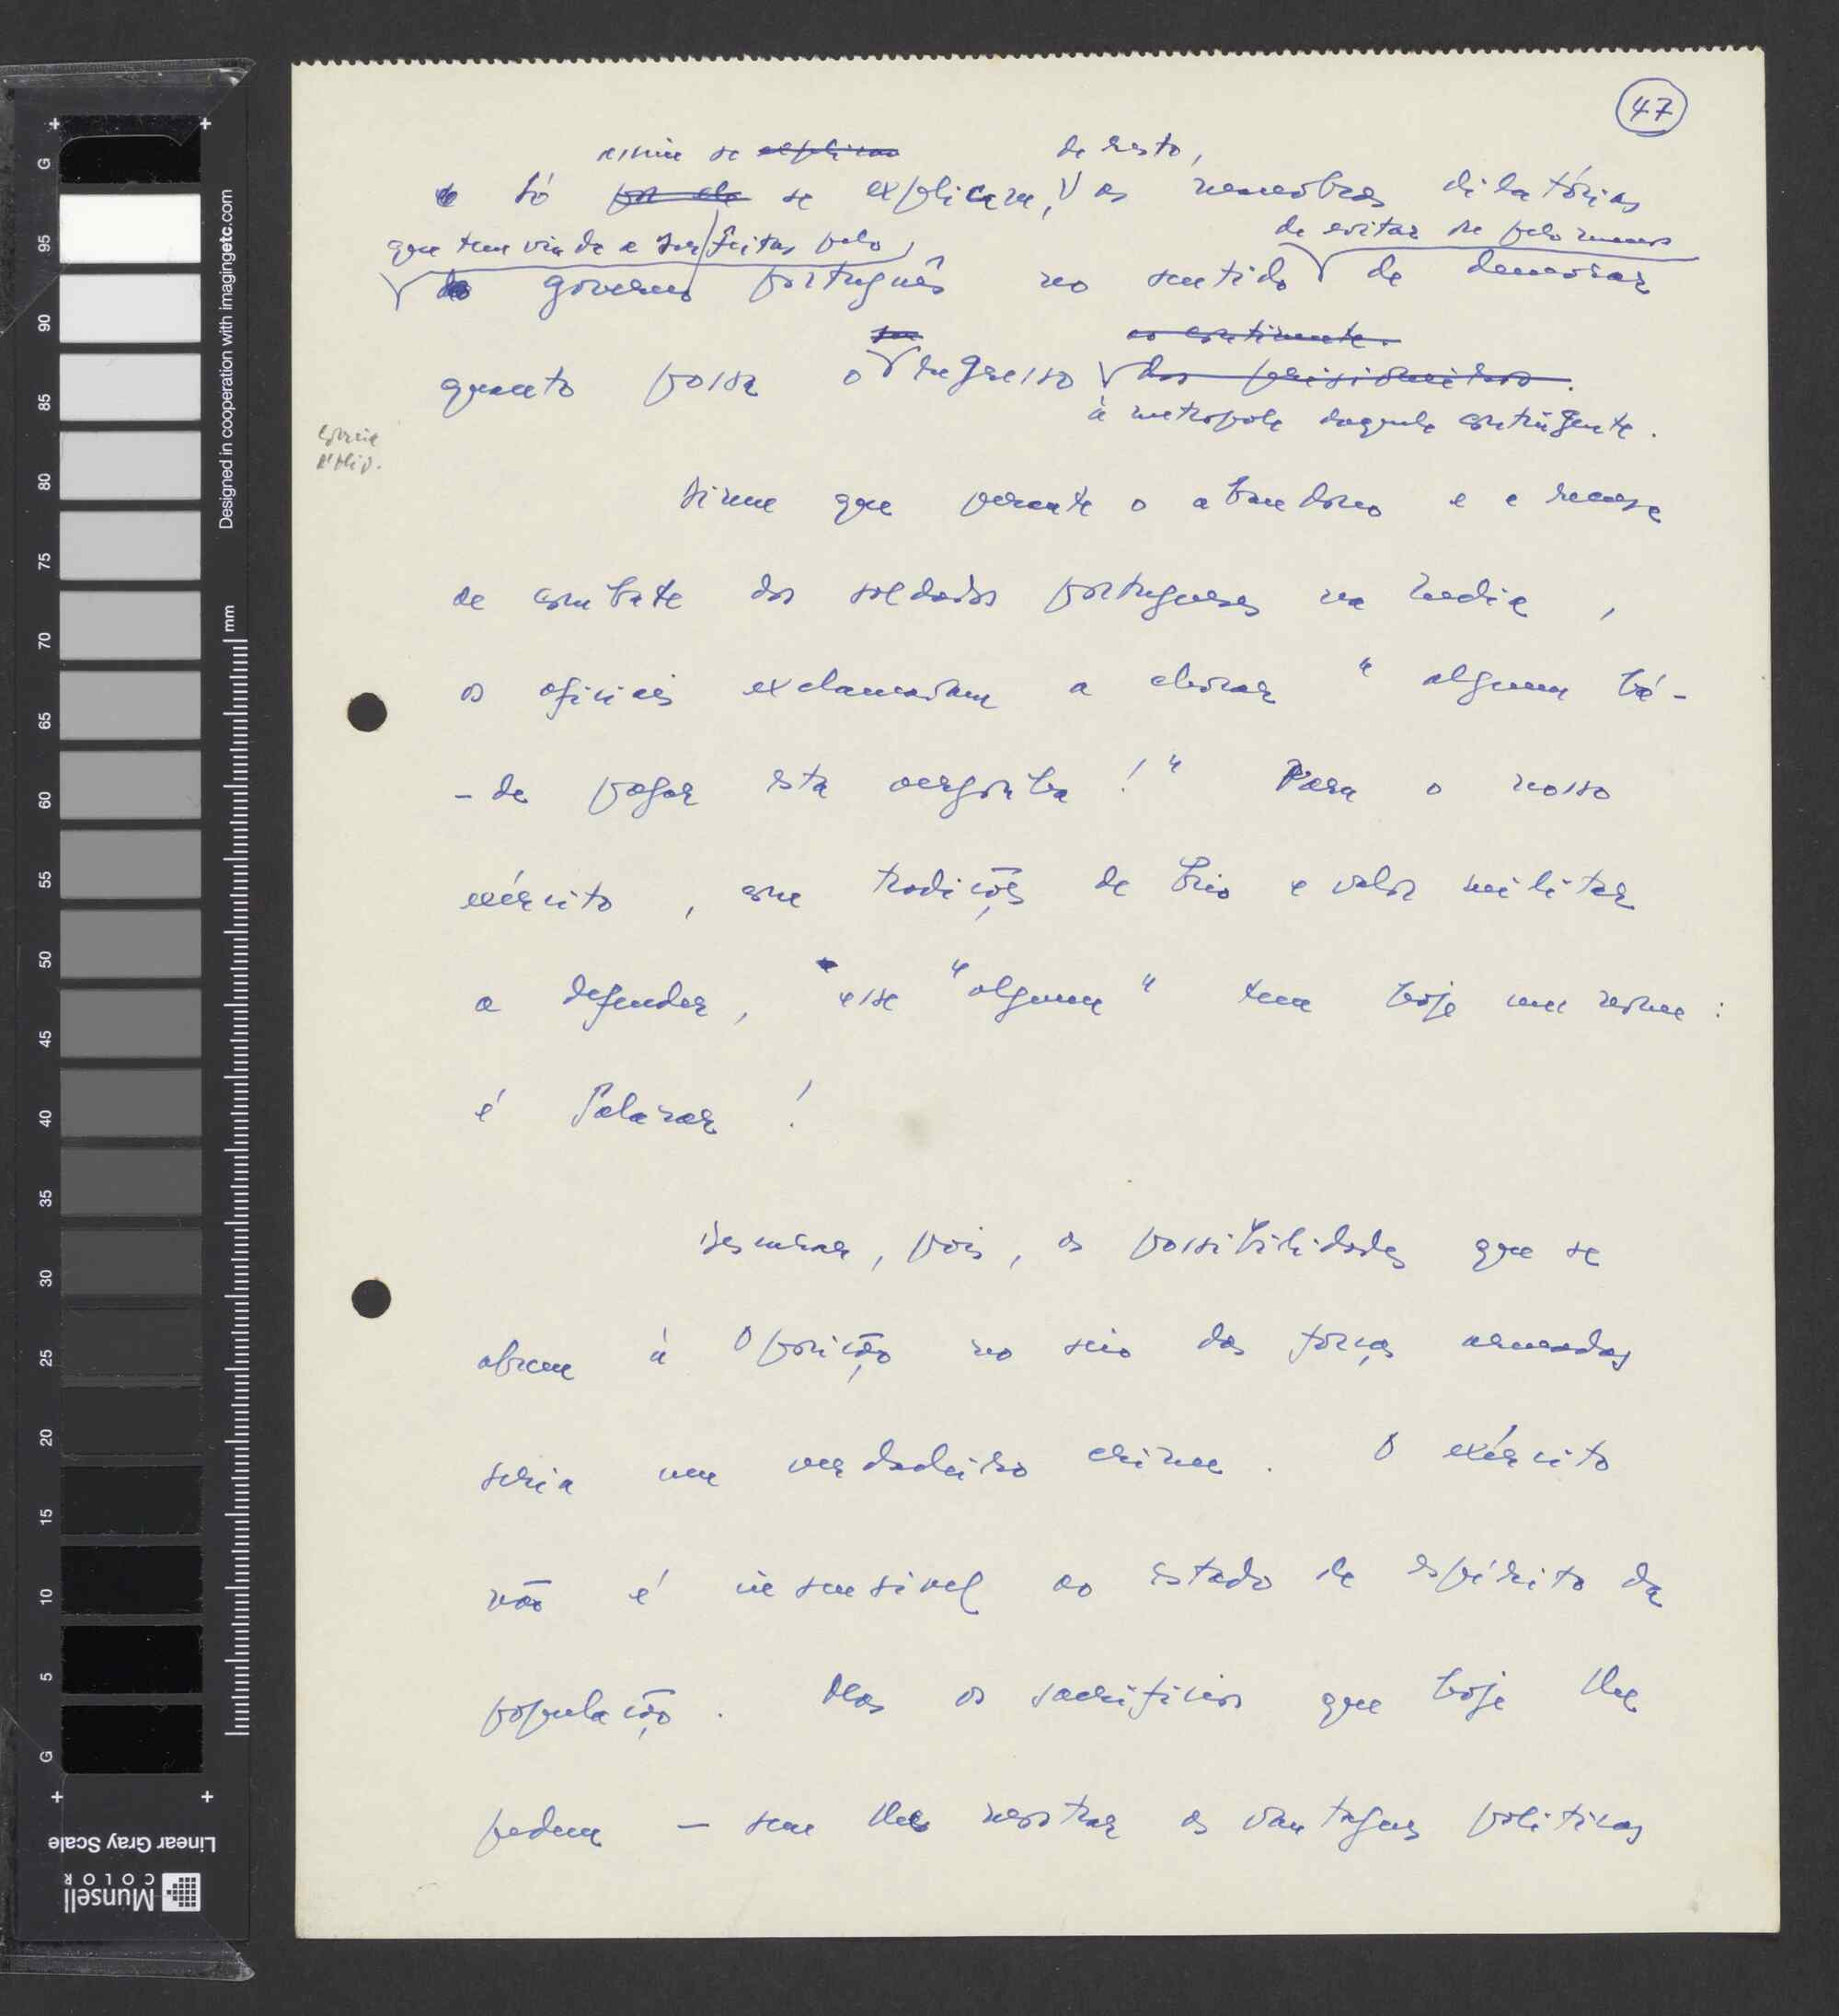 47
assim se ~~explicam~~ de resto,
e só ~~por ela~~ se explicam, as manobras dilatórias
que tem vindo a ser feitas pelo
de evitar ou pelo menos
governo português no sentido de demorar
~~seu~~ ~~ao continente.~~
quanto possa o regresso ~~dos prisioneiros~~.
à metropole daquele contingente.
Dizem que perante o abandono e a recusa
de combate dos soldados portugueses na India,
os oficiais exclamavam a chorar "alguem há-
-de pagar esta vergonha!" Para o nosso
exército, com tradições de brio e valor militar
a defender, esse "alguem" tem hoje um nome:
é Salazar!
Desprezar, pois, as possibilidades que se
abrem à Oposição no seio das forças armadas
seria um verdadeiro crime. O exército
não é insensivel ao estado de espírito da
população. Mas os sacrificios que hoje lhe
pedem — sem lhes mostrar as vantagens politicas
Designed in cooperation with imagingetc.com
mm
G
95
90
85
80
75
70
65
60
55
50
45
40
35
30
25
20
15
10
5
G
Linear Gray Scale
Munsell
COLOR